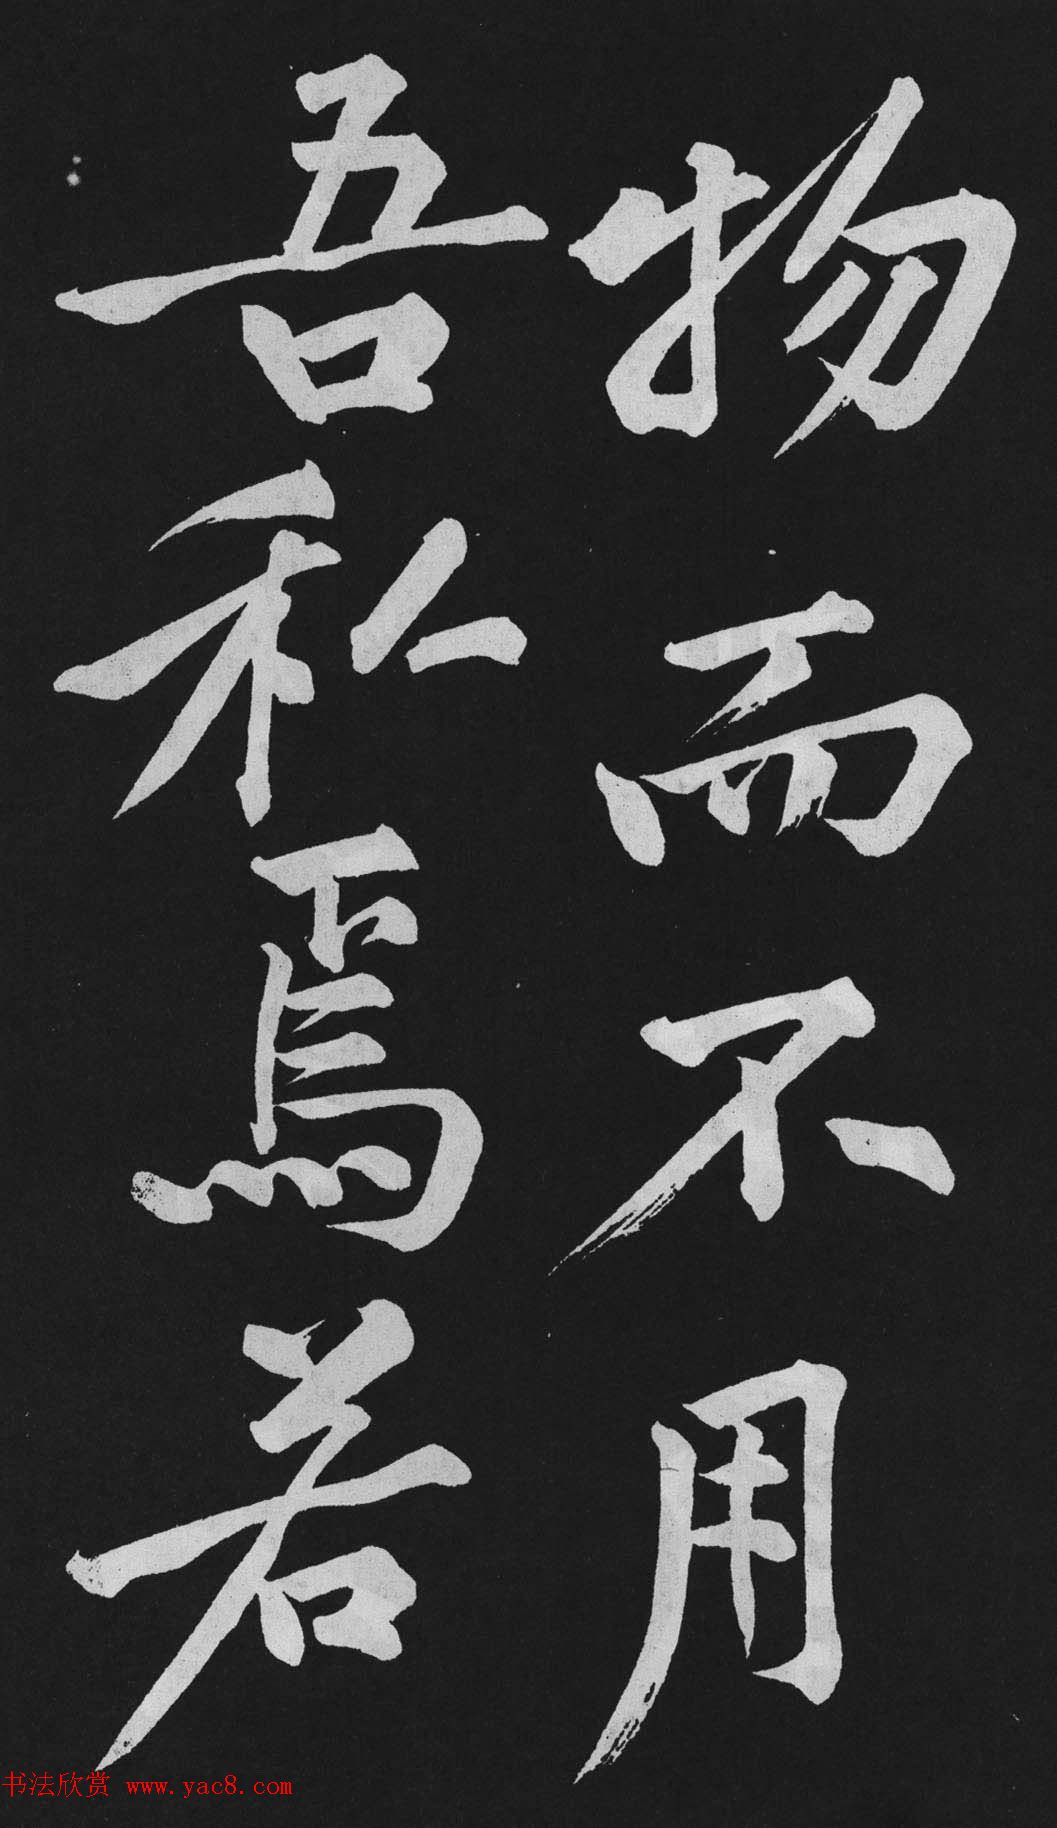 物而不用
吾私焉若
书法欣赏 www.yac8.com